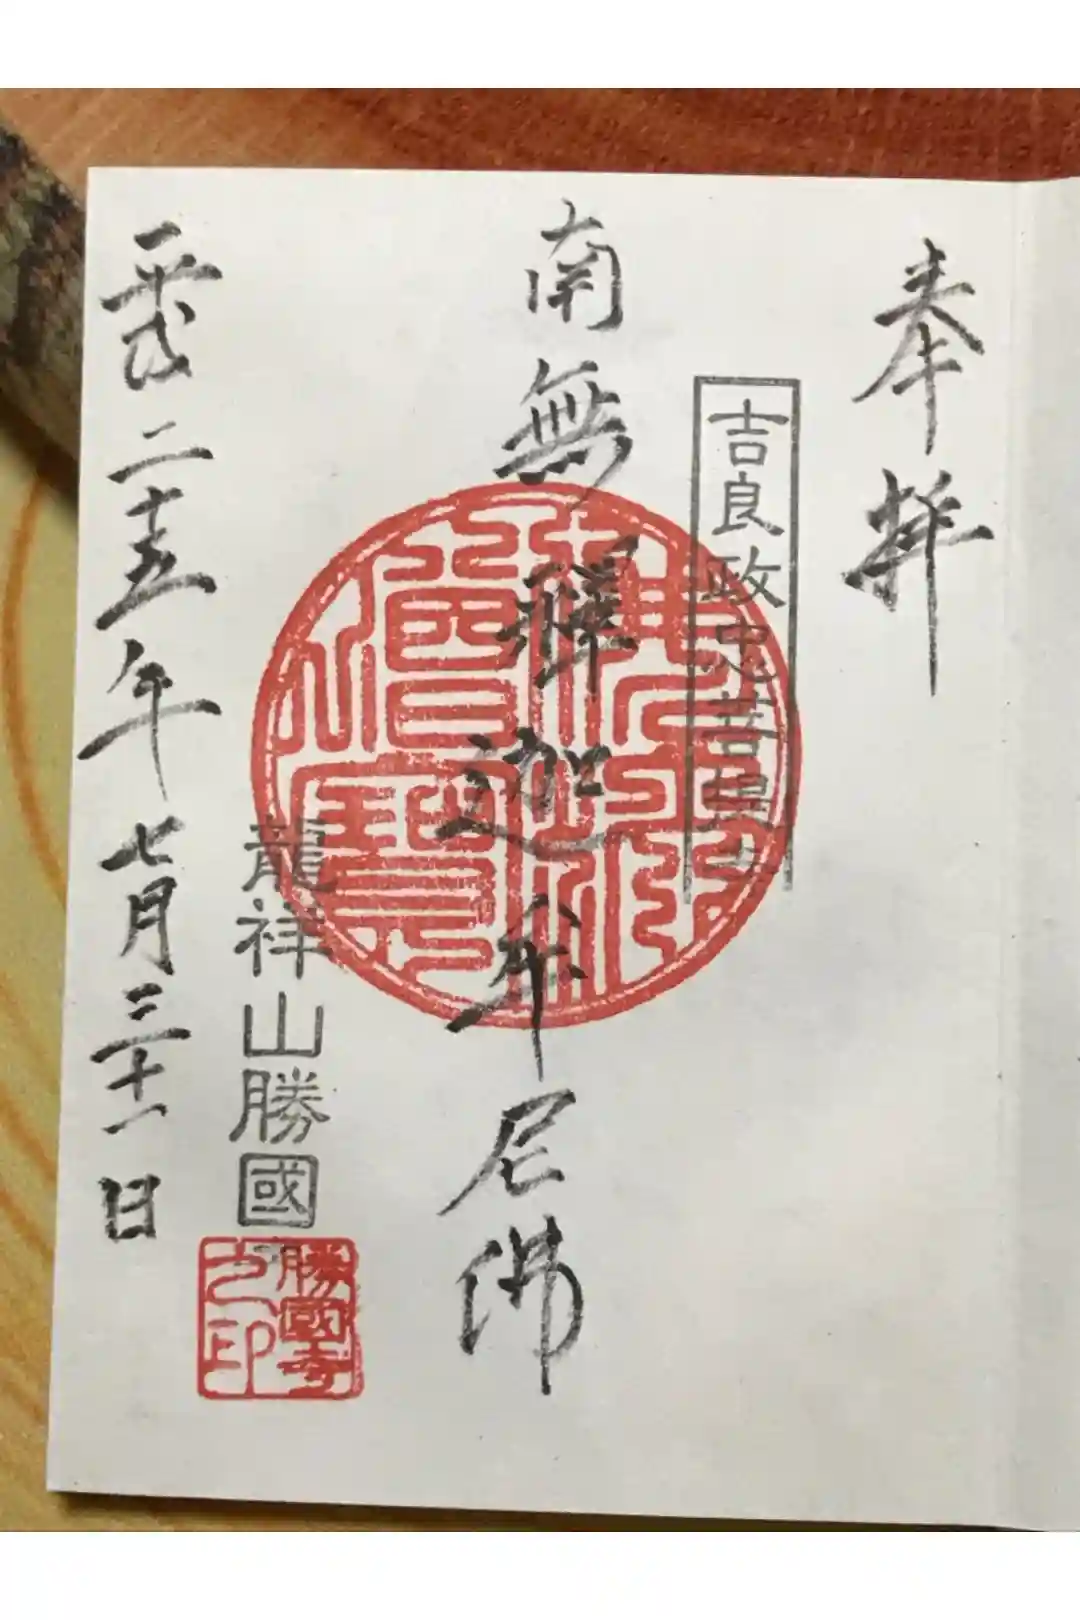 奉拝
吉良政忠菩提寺
南無釋迦牟尼佛
佛法僧寶
龍祥山勝國寺
勝國寺之印
平成二十五年七月三十一日